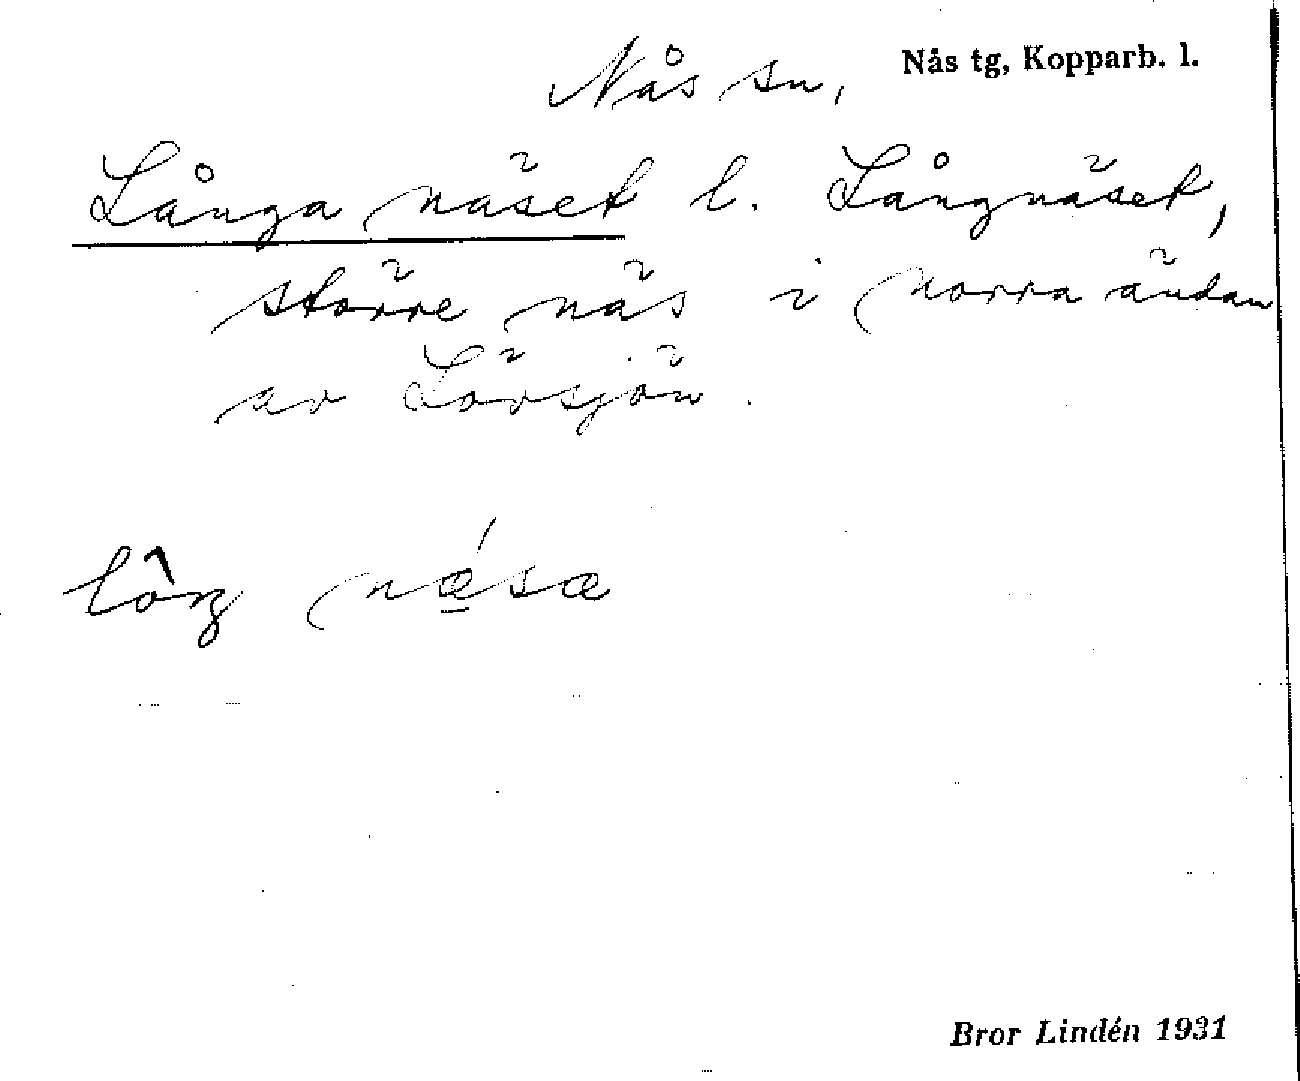 Nås sn, Nås tg, Kopparb. l.
Långa näset l. Långnäset,
större näs i norra ändan
av Lövsjön.
lôŋ nǽ̲sæ
Bror Lindén 1931